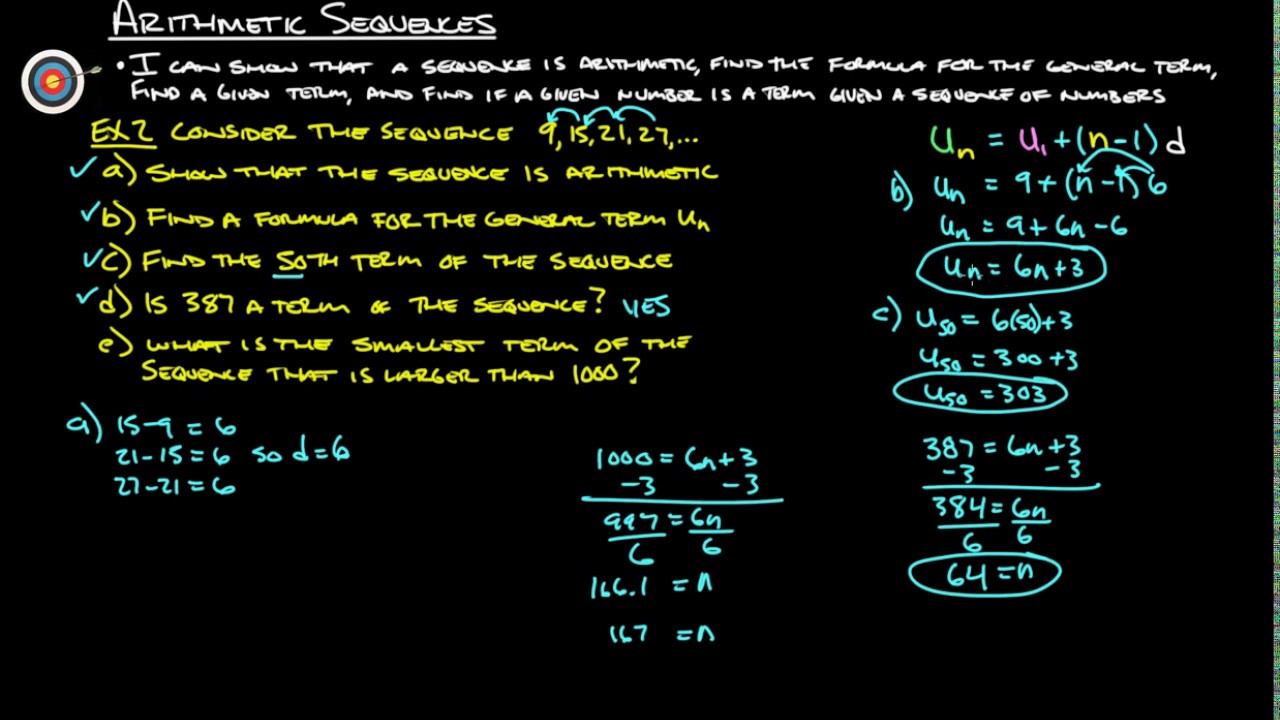 ARITHMETIC SEQUENCES
• I CAN SHOW THAT A SEQUENCE IS ARITHMETIC, FIND THE FORMULA FOR THE GENERAL TERM,
FIND A GIVEN TERM, AND FIND IF A GIVEN NUMBER IS A TERM GIVEN A SEQUENCE OF NUMBERS
EX 2 CONSIDER THE SEQUENCE 9, 15, 21, 27, ...
✓ a) SHOW THAT THE SEQUENCE IS ARITHMETIC
✓ b) FIND A FORMULA FOR THE GENERAL TERM Uₙ
✓ c) FIND THE 50TH TERM OF THE SEQUENCE
✓ d) IS 387 A TERM OF THE SEQUENCE? YES
e) WHAT IS THE SMALLEST TERM OF THE
SEQUENCE THAT IS LARGER THAN 1000?
a) 15-9 = 6
21-15 = 6 so d=6
27-21 = 6
1000 = 6n+3
-3 -3
997 = 6n
6 6
166.1 = n
167 = n
Uₙ = U₁ + (n-1) d
b) uₙ = 9 + (n-1) 6
uₙ = 9 + 6n - 6
uₙ = 6n+3
c) u₅₀ = 6(50)+3
u₅₀ = 300+3
u₅₀ = 303
387 = 6n+3
-3 -3
384 = 6n
6 6
64 = n